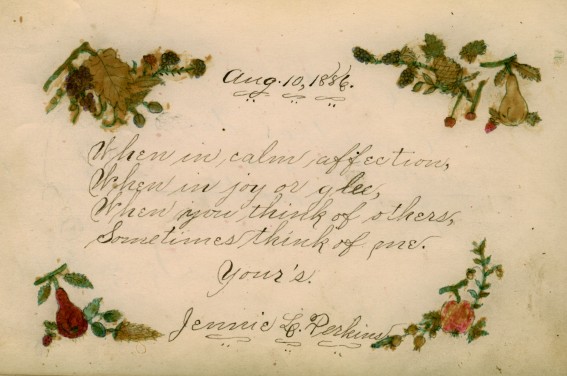 Aug. 10, 1886.
When in calm affection,
When in joy or glee,
When you think of others,
Sometimes think of me.
Your's.
Jennie L. Perkins